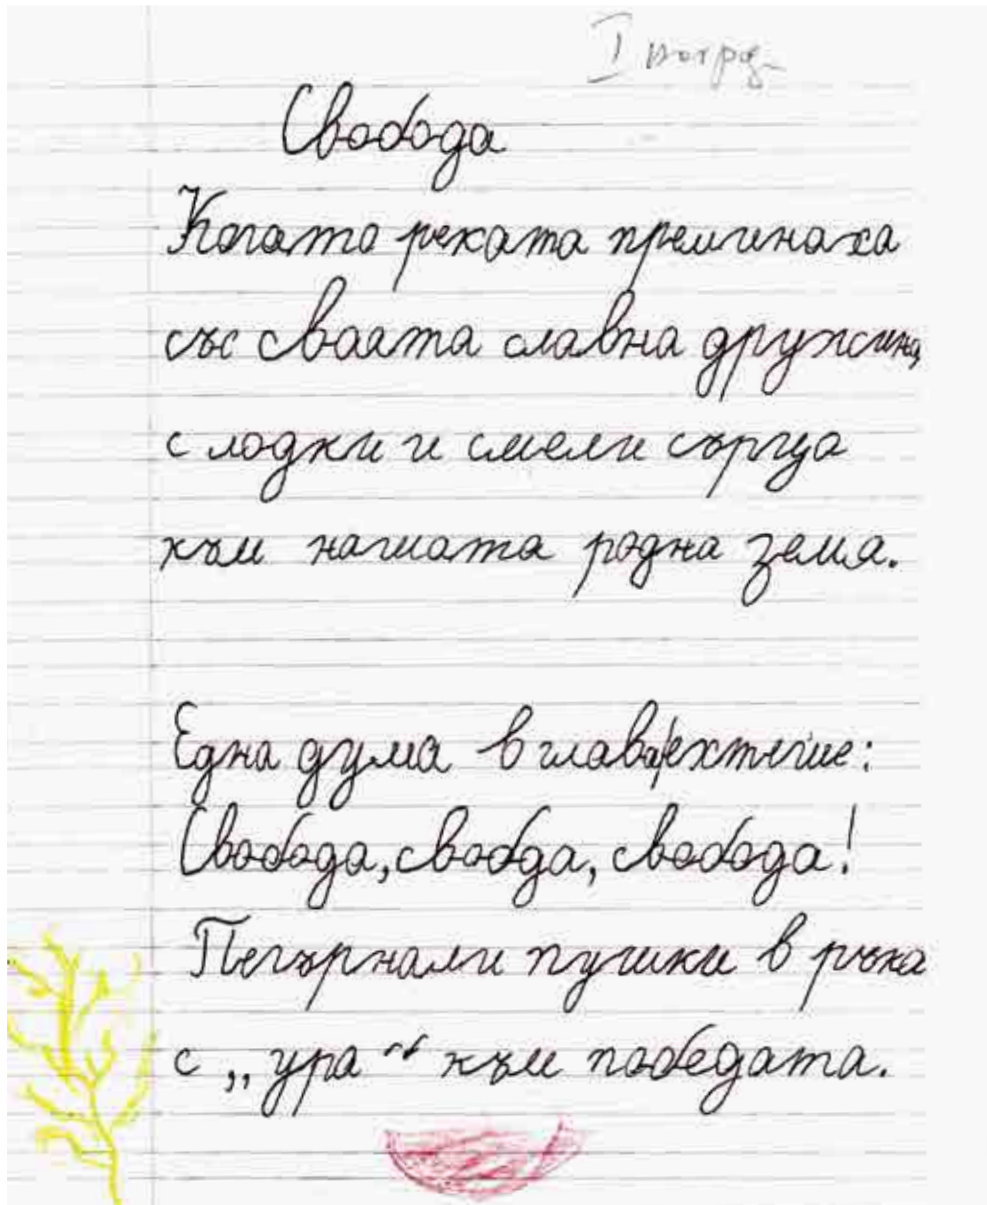 I
Свобода
Когато реката преминаха
със своята славна дружина
с лодки и смели сърца
към нашата родна земя.
Една дума в глава ехтеше:
Свобода, свобда, свобода!
Пегърнали пушки в ръка
с „ура“ към победата.